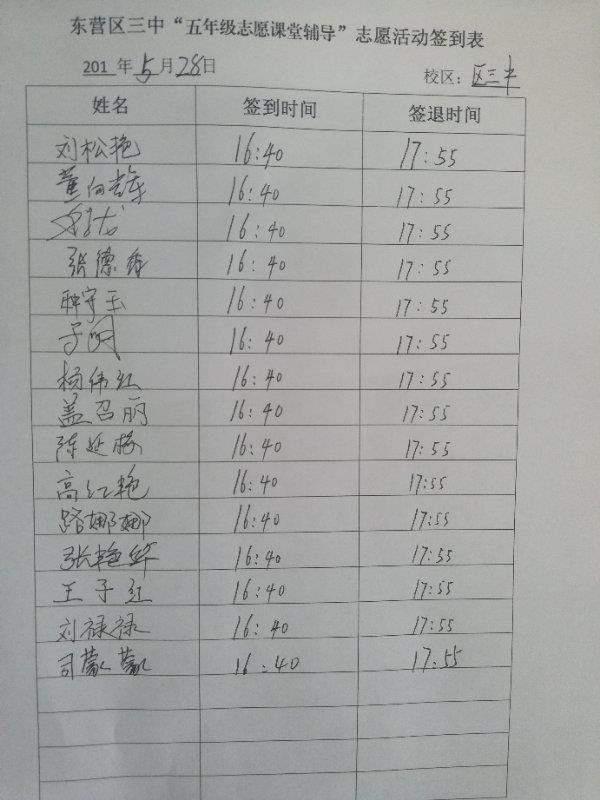 东营区三中“五年级志愿课堂辅导”志愿活动签到表
201 年 5 月 28 日 校区：区三中
姓名 签到时间 签退时间
刘松艳 16:40 17:55
董向 16:40 17:55
16:40 17:55
张德香 16:40 17:55
守玉 16:40 17:55
16:40 17:55
杨伟红 16:40 17:55
盖召丽 16:40 17:55
陈延梅 16:40 17:55
高红艳 16:40 17:55
路娜娜 16:40 17:55
张艳华 16:40 17:55
王子红 16:40 17:55
刘禄禄 16:40 17:55
司蒙蒙 16:40 17:55